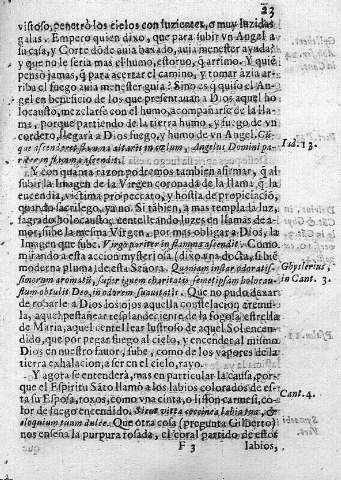 23
vistoso, penetrò los cielos con luzientes, o muy luzidas
galas. Empero quien dixo, que para subir vn Angel a
su casa, y Corte dõde auia baxado, auia menester ayuda?
y que no le seria mas el humo, estoruo, q̃ arrimo. Y quiẽ
pensò jamas, q̃ para acertar el camino, y tomar àzia arri-
ba el fuego auia menester guia? Sino es q̃ quiso el An-
gel en beneficio de los que presentauan a Dios aquel ho
locausto, mezclarse con el humo, acompañarse de la lla-
ma, porque partiendo de la tierra humo, y fuego de vn
cordero, llegara a Dios fuego, y humo de vn Angel. Cũ-
que ascenderet flamma altaris in cœlum, Angelus Domini pa-
riter in flamma ascendit.
Iud. 13.
Y con quanta razon podremos tambien afirmar, q̃ al
subir la Imagen de la Virgen coronada de la llama, q̃ la
encendia, victima por nectato, y hostia de propiciaciõ,
quando sacrilego, ya no. Si tãbien, a mas templada luz,
sagrado holocausto, centelleando luzes en llamas de a-
mor, sube la mesma Virgen, por mas obligar a Dios, la
Imagen que sube. Virgo pariter in flamma ascendit. Como
mirando a esta accion mysteriosa (dixo vna docta, si biẽ
moderna pluma) de esta Señora. Quoniam instar odoratis-
simorum aromatũ, super ignem charitatis se met ipsam holocau-
stum obtulit Deo, in odorem suauitatis. Que no pudo dexar
de robarle a Dios los ojos aquella constelacion tremu-
la, aquel pestañear resplandeciente de la fogosa estrella
de Maria, aquel centellear lustroso de aquel Sol encen-
dido, que por pegar fuego al cielo, y encender al mismo
Dios en nuestro fauor, sube, como de los vapores de la
tierra exhalacion, a ser en el cielo, rayo.
Ghyslerius,
in Cant. 3.
Y agora se entenderà, mas en particular la causa, por-
que el Espiritu Sãto llamò a los labios colorados de es-
ta su Esposa, roxos, como vna cinta, o listõn carmesi, co-
lor de fuego encendido. Sicut vitta coccinea labia tua, &
eloquium tuum dulce. Que otra cosa (pregunta Gilberto)
nos enseña la purpura rosada, el coral partido de estos
Cant. 4.
F 3
labios,